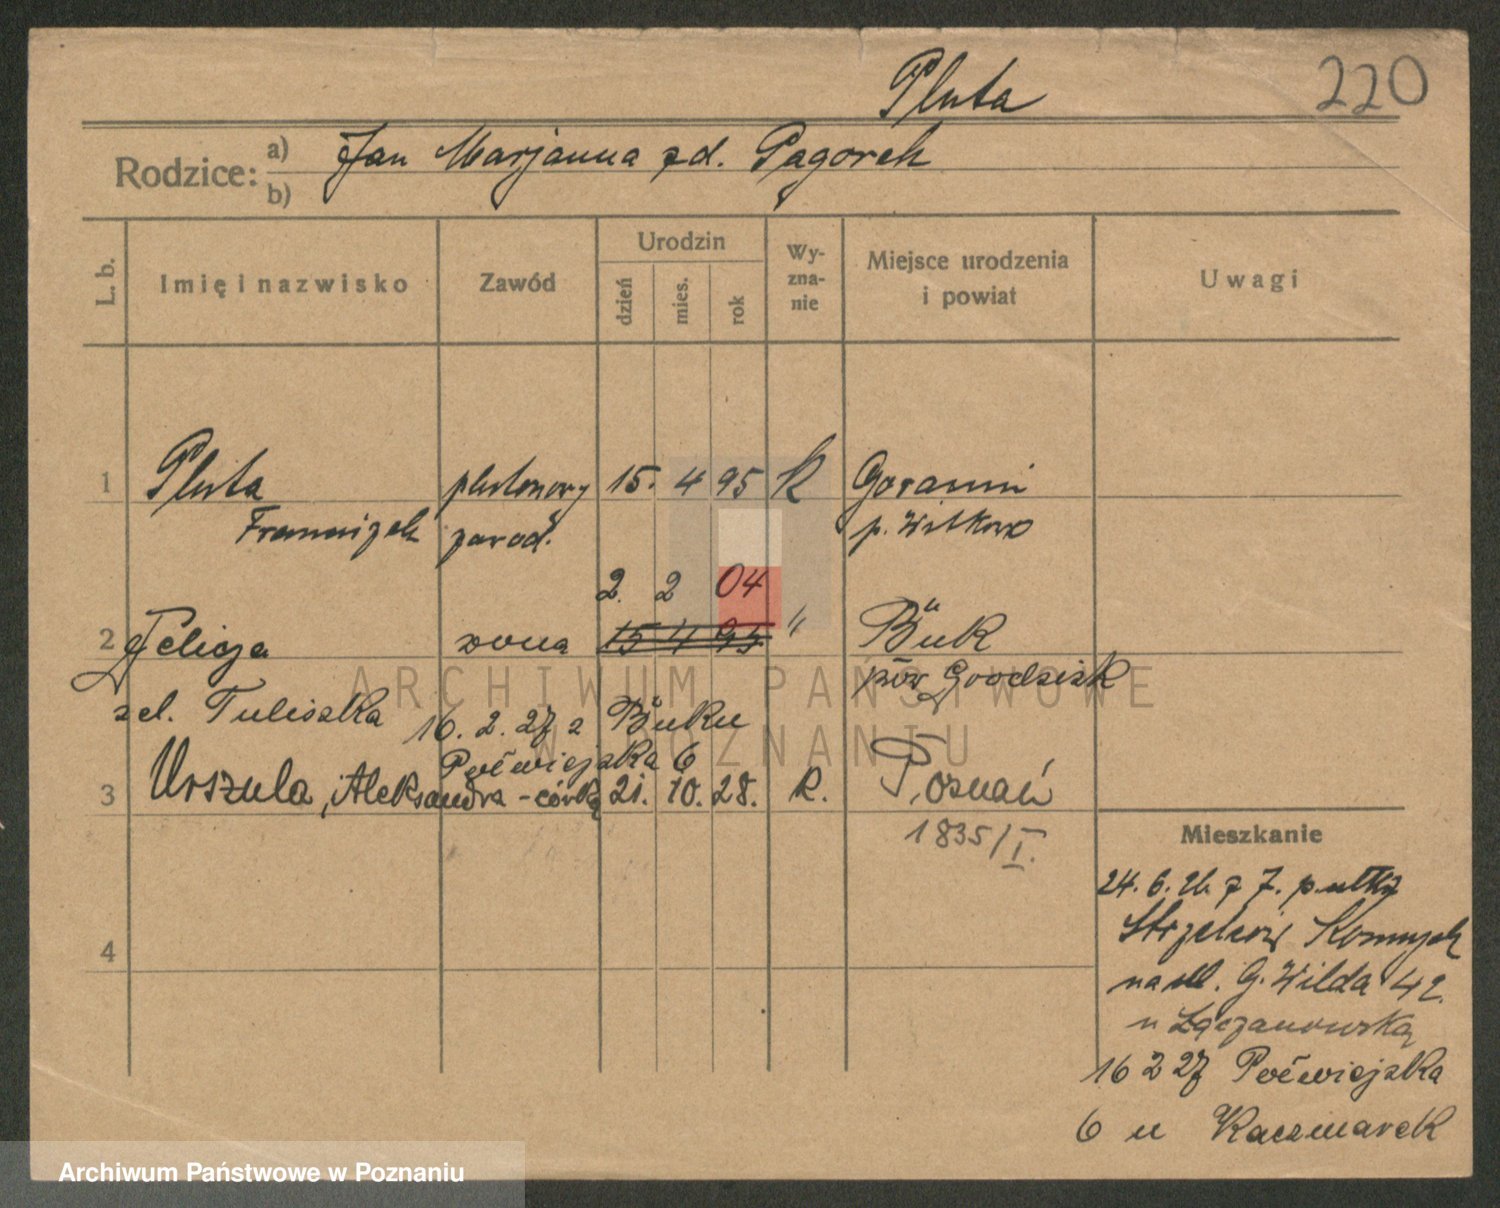 Pluta
220
Rodzice: a) Jan Marjanna zd. Pągorek
b)
L. b.
Imię i nazwisko
Zawód
Urodzin
dzień
mies.
rok
Wy-
zna-
nie
Miejsce urodzenia
i powiat
Uwagi
1 Pluta plutonowy 15. 4 95 K Goranin
Franciszek zawod. p. Witkowo
2. 2 04
2 Felicja żona 15 4 95 " Buk
pow Grodzisk
zd. Tuliszka 16. 2. 27 z Buku
Półwiejska 6
3 Urszula, Aleksandra - córka 21. 10. 28. k. Poznań
1835/I.
4
Mieszkanie
24. 6. 26. z 7. pułku
Strzelców Konnych
na ul. G. Wilda 42.
u Łączanowską
16 2 27 Półwiejska
6 u Kaczmarek
ARCHIWUM PAŃSTWOWE
W POZNANIU
Archiwum Państwowe w Poznaniu